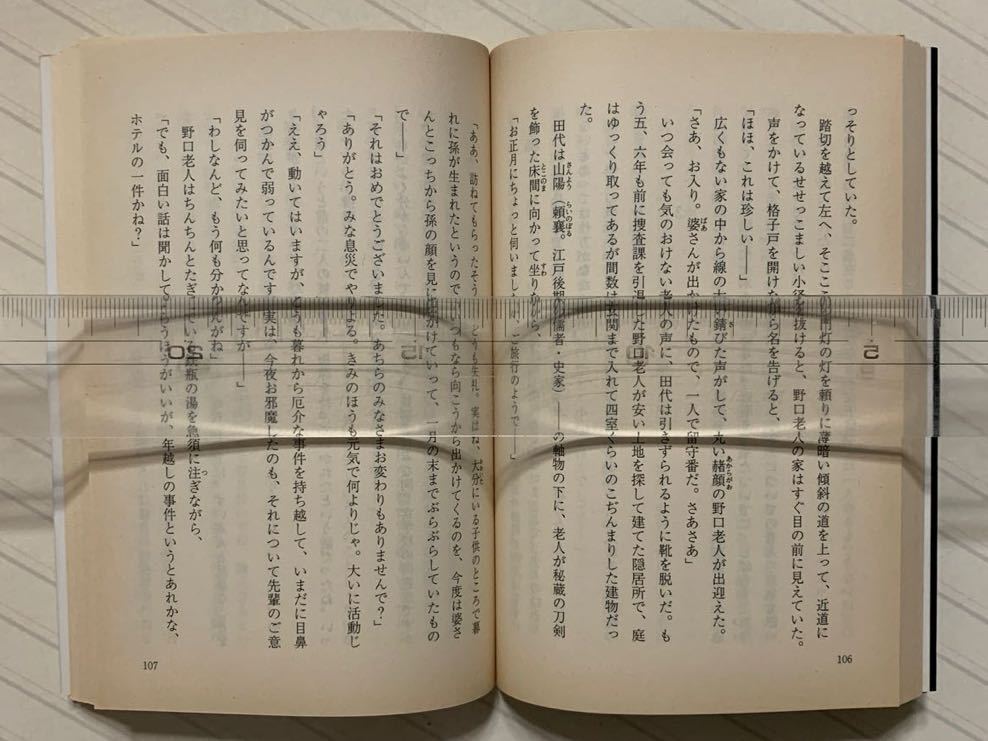 っそりとしていた。
踏切を越えて左へ、そここの門灯の灯を頼りに薄暗い傾斜の道を上って、近道に
なっているせせっこましい小径を抜けると、野口老人の家はすぐ目の前に見えていた。
声をかけて、格子戸を開けながら名を告げると、
「ほほ、これは珍しい――」
広くもない家の中から線の太い錆びた声がして、丸い赭顔の野口老人が出迎えた。
「さあ、お入り。婆さんが出かけたもので、一人で留守番だ。さあさあ」
いつ会っても気のおけない老人の声に、田代は引きずられるように靴を脱いだ。も
う五、六年も前に捜査課を引退した野口老人が安い土地を探して建てた隠居所で、庭
はゆっくり取ってあるが間数は玄関まで入れて四室くらいのこぢんまりした建物だっ
た。
田代は山陽（頼襄。江戸後期の儒者・史家）――の軸物の下に、老人が秘蔵の刀剣
を飾った床間に向かって坐りながら、
「お正月にちょっと伺いましたら、ご旅行のようで――」
106
「ああ、訪ねてもらったそうで、どうも失礼。実はね、大分にいる子供のところで暮
れに孫が生まれたというので、いつもなら向こうから出かけてくるのを、今度は婆さ
んとこっちから孫の顔を見に出かけていって、一月の末までぶらぶらしていたもの
で――」
「それはおめでとうございました。あちらのみなさまお変わりもありませんで？」
「ありがとう。みな息災でやりよる。きみのほうも元気で何よりじゃ。大いに活動じ
ゃろう」
「ええ、動いてはいますが、どうも暮れから厄介な事件を持ち越して、いまだに目鼻
がつかんで弱っているんです。実は、今夜お邪魔したのも、それについて先輩のご意
見を伺ってみたいと思ってなんですが――」
「わしなんど、もう何も分からんがね」
野口老人はちんちんとたぎっている鉄瓶の湯を急須に注ぎながら、
「でも、面白い話は聞かしてもらうほうがいいが、年越しの事件というとあれかな、
ホテルの一件かね？」
107